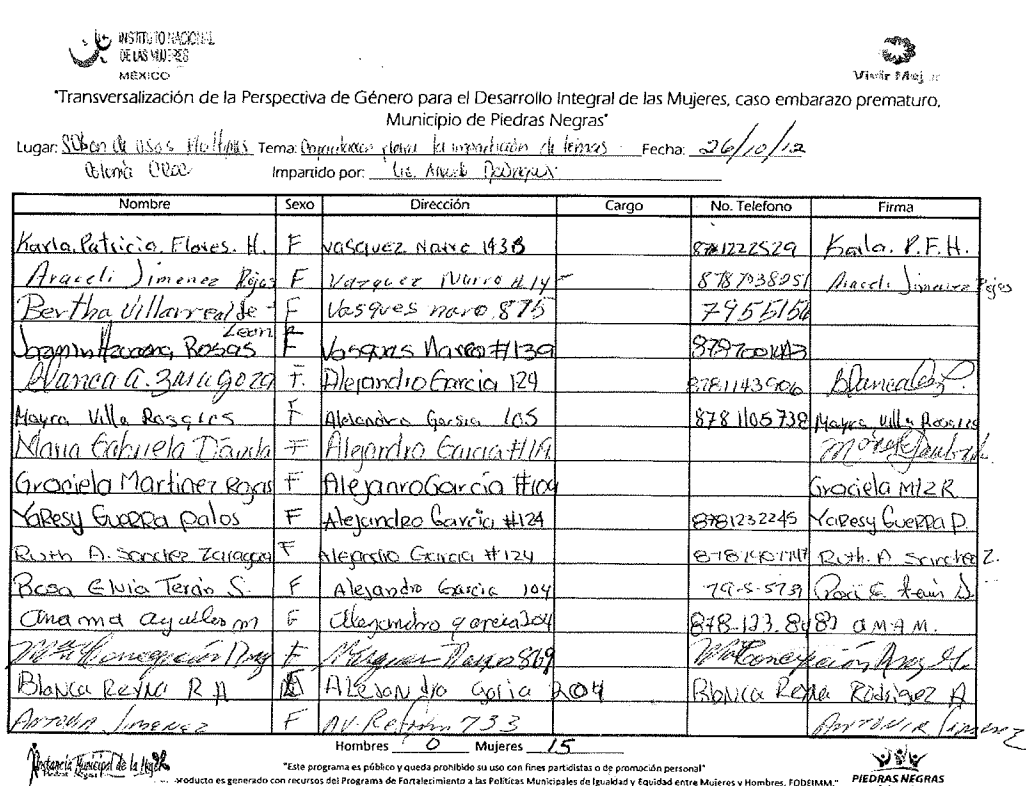 INSTITUTO NACIONAL
DE LAS MUJERES
MÉXICO
Vivir Mejor
"Transversalización de la Perspectiva de Género para el Desarrollo Integral de las Mujeres, caso embarazo prematuro,
Municipio de Piedras Negras"
Lugar: Salon de usos Multiples Tema: para la impartición de temas Fecha: 26/10/12
Colonia Impartido por: Lic. Araceli Rodriguez
Nombre Sexo Dirección Cargo No. Telefono Firma
Karla Patricia Flores. H. F Vasquez Narro 1438 8781222529 Karla. P.F.H.
Araceli Jimenez Rojas F Vazquez Narro #.14 8787038951 Araceli Jimenez Rojas
Bertha Villarreal de Leon F Vasques naro 875 7955156
Rosas F Vasques Narro #139
Blanca a. Zaragoza F. Alejandro Garcia 124 8781143906
Mayra Villa Rosales F Alejandro Garsia 105 8781105738 Mayra Villa Rosales
Maria Gabriela Dávila F Alejandro Garcia #119
Graciela Martinez Rojas F Alejanro García #104 Graciela Mtz R
Yaresy Guerra Palos F Alejandro Garcia #124 8781232245 Yaresy Guerra P.
Ruth A. Sanchez Zaragoza F Alejandro Garcia #124 Ruth. A Sanchez Z.
Rosa Elvia Terán S. F Alejandro Garcia 104 79-5-5739
ana ma aguillon m F Alejandro garcia 204 878-123.8487 a M A M.
Ma Concepción F 869 Ma Concepción
Blanca Reyna R A Alejandro garia 204 Blanca Reyna Rodrigez A
Antonia Jimenez F AV. Reform 733 Antonia Jimenez
Hombres 0 Mujeres 15
Instancia Municipal de la Mujer
Piedras Negras
"Este programa es público y queda prohibido su uso con fines partidistas o de promoción personal"
producto es generado con recursos del Programa de Fortalecimiento a las Políticas Municipales de Igualdad y Equidad entre Mujeres y Hombres, FODEIMM."
PIEDRAS NEGRAS